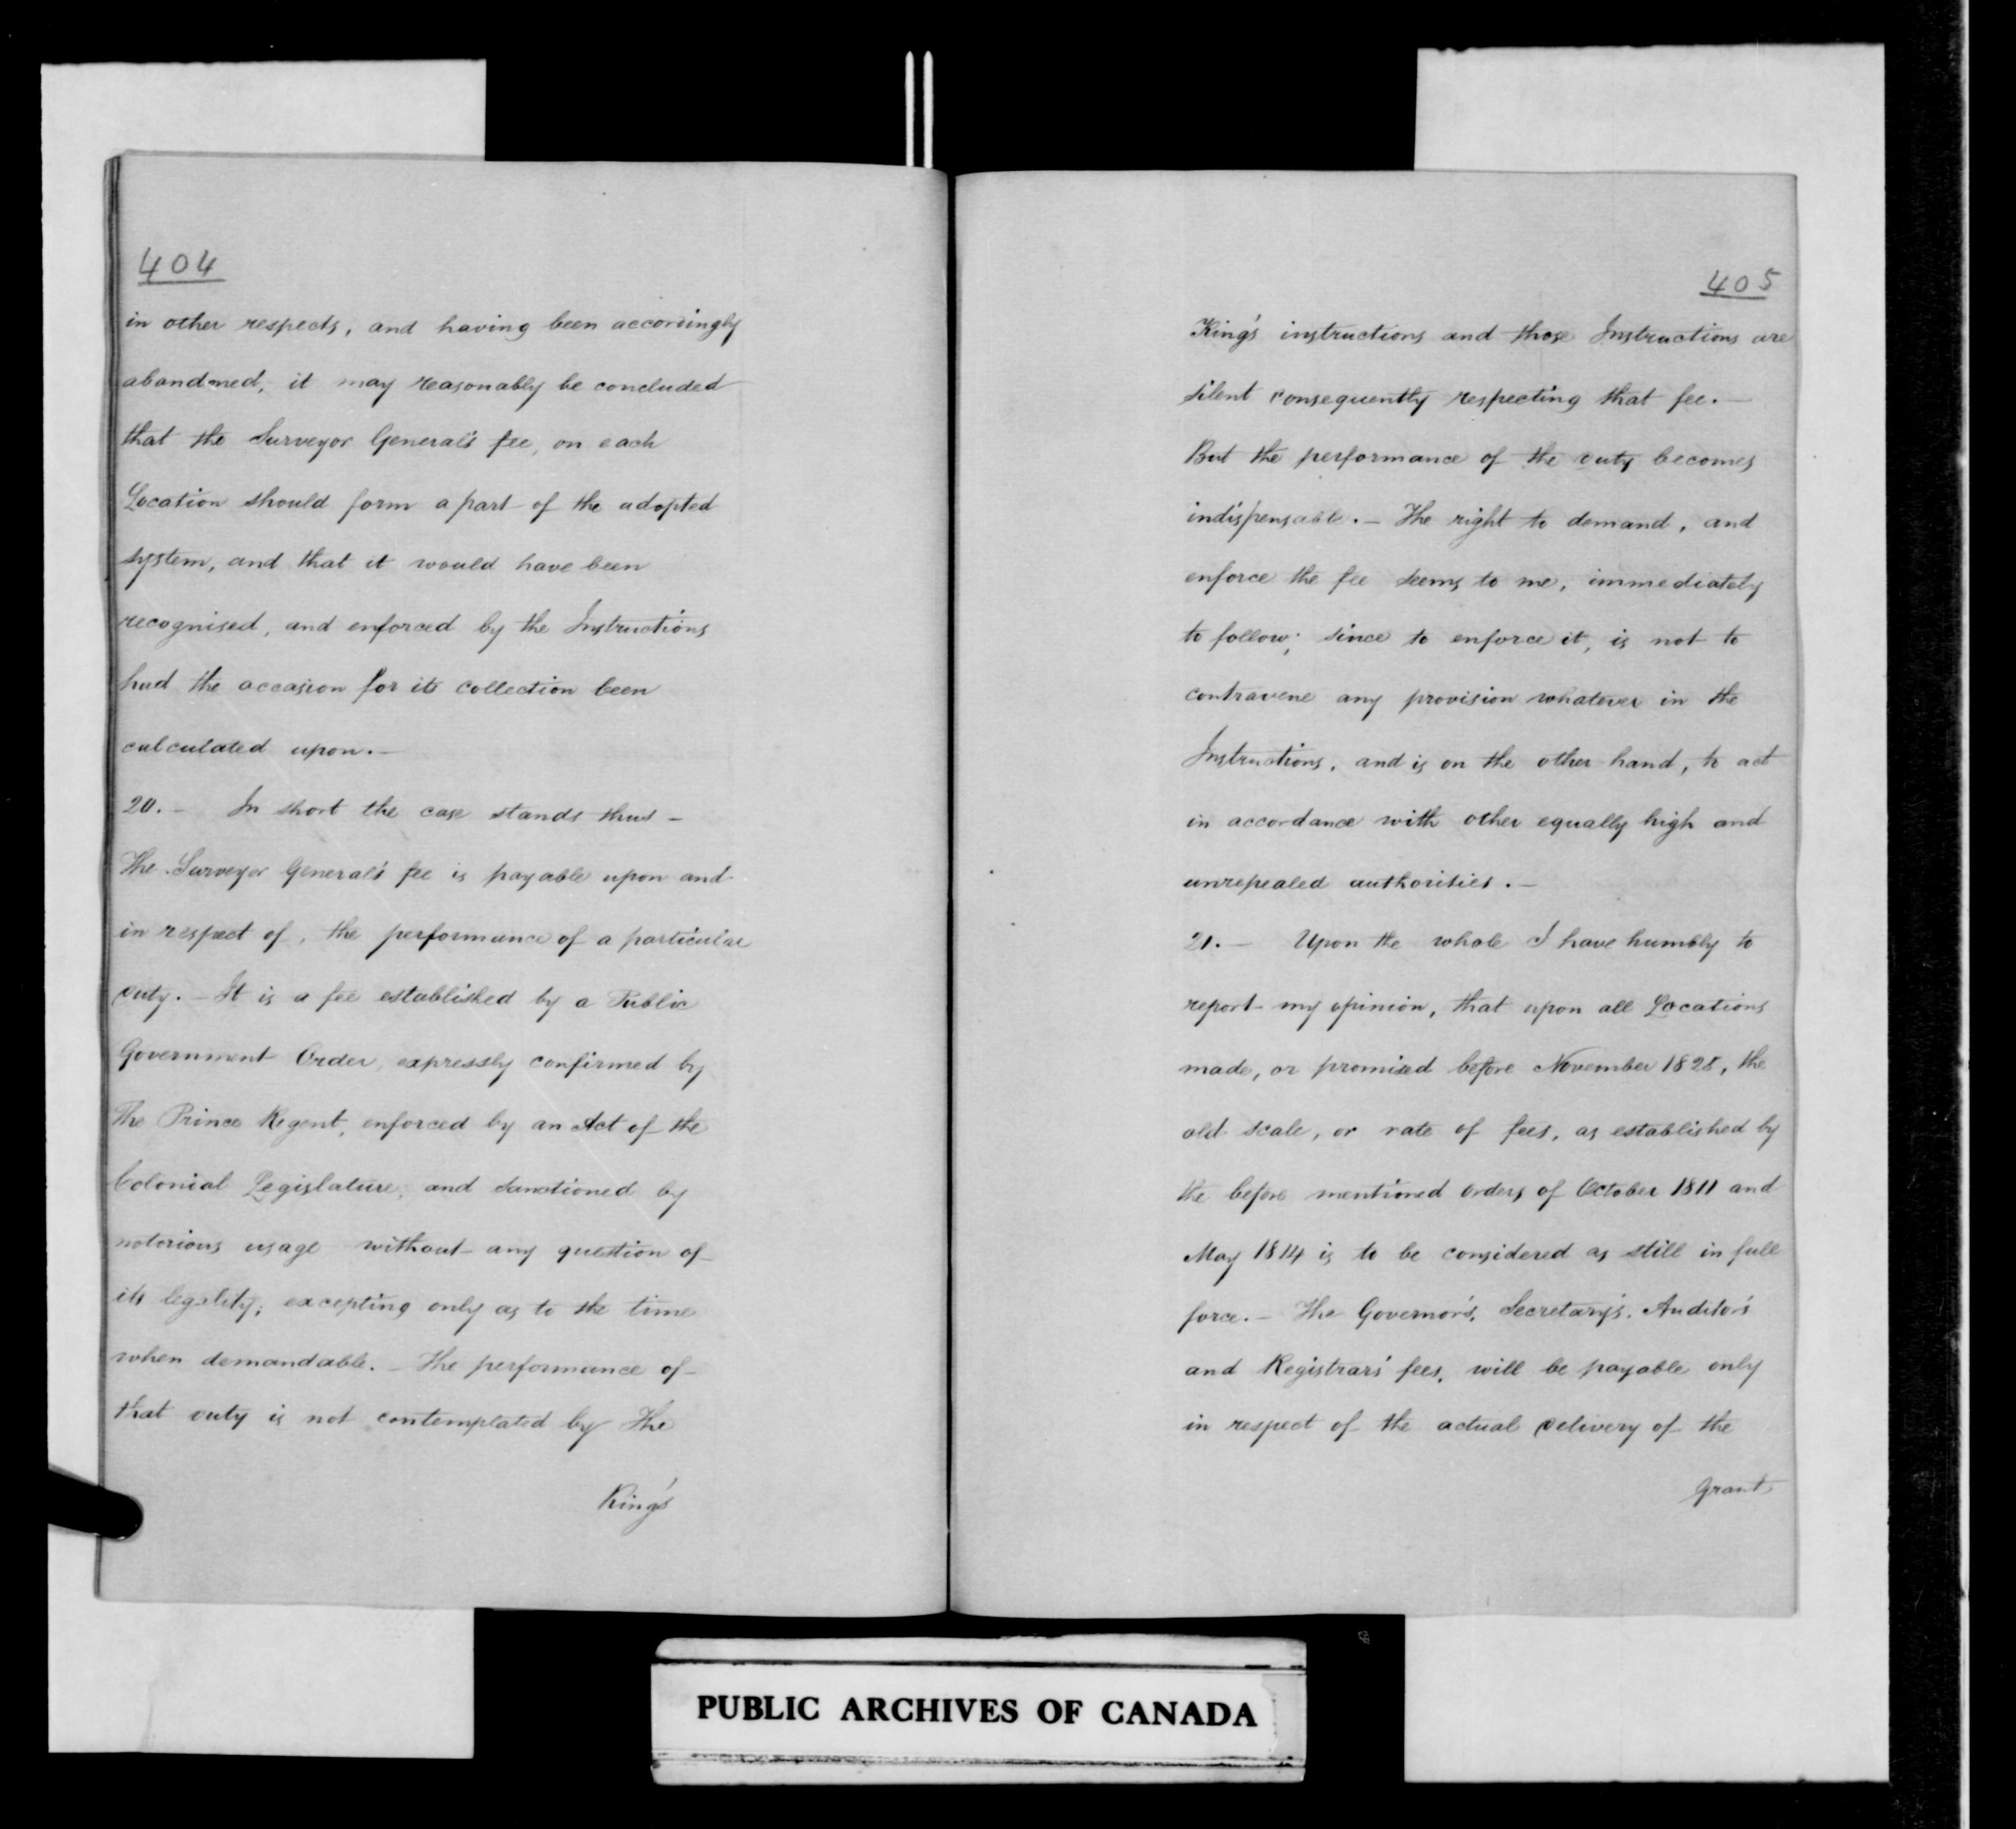 404
in other respects, and having been accordingly
abandoned, it may reasonably be concluded
that the Surveyor General's fee, on each
Location should form a part of the adopted
system, and that it would have been
recognised, and enforced by the Instructions
had the occasion for its collection been
calculated upon.—
20.— In short the case stands thus—
The Surveyor General's fee is payable upon and
in respect of, the performance of a particular
duty.— It is a fee established by a Public
Government Order, expressly confirmed by
The Prince Regent, enforced by an Act of the
Colonial Legislature, and sanctioned by
notorious usage without any question of
its legality; excepting only as to the time
when demandable.— The performance of
that duty is not contemplated by The
King's
405
King's instructions and those Instructions are
silent consequently respecting that fee.—
But the performance of the duty becomes
indispensable.— The right to demand, and
enforce the fee seems to me, immediately
to follow; since to enforce it, is not to
contravene any provision whatever in the
Instructions, and is on the other hand, to act
in accordance with other equally high and
unrepealed authorities.—
21.— Upon the whole I have humbly to
report my opinion, that upon all Locations
made, or promised before November 1828, the
old scale, or rate of fees, as established by
the before mentioned orders of October 1811 and
May 1814 is to be considered as still in full
force.— The Governor's, Secretary's, Auditor's
and Registrars' fees, will be payable only
in respect of the actual delivery of the
Grant
PUBLIC ARCHIVES OF CANADA